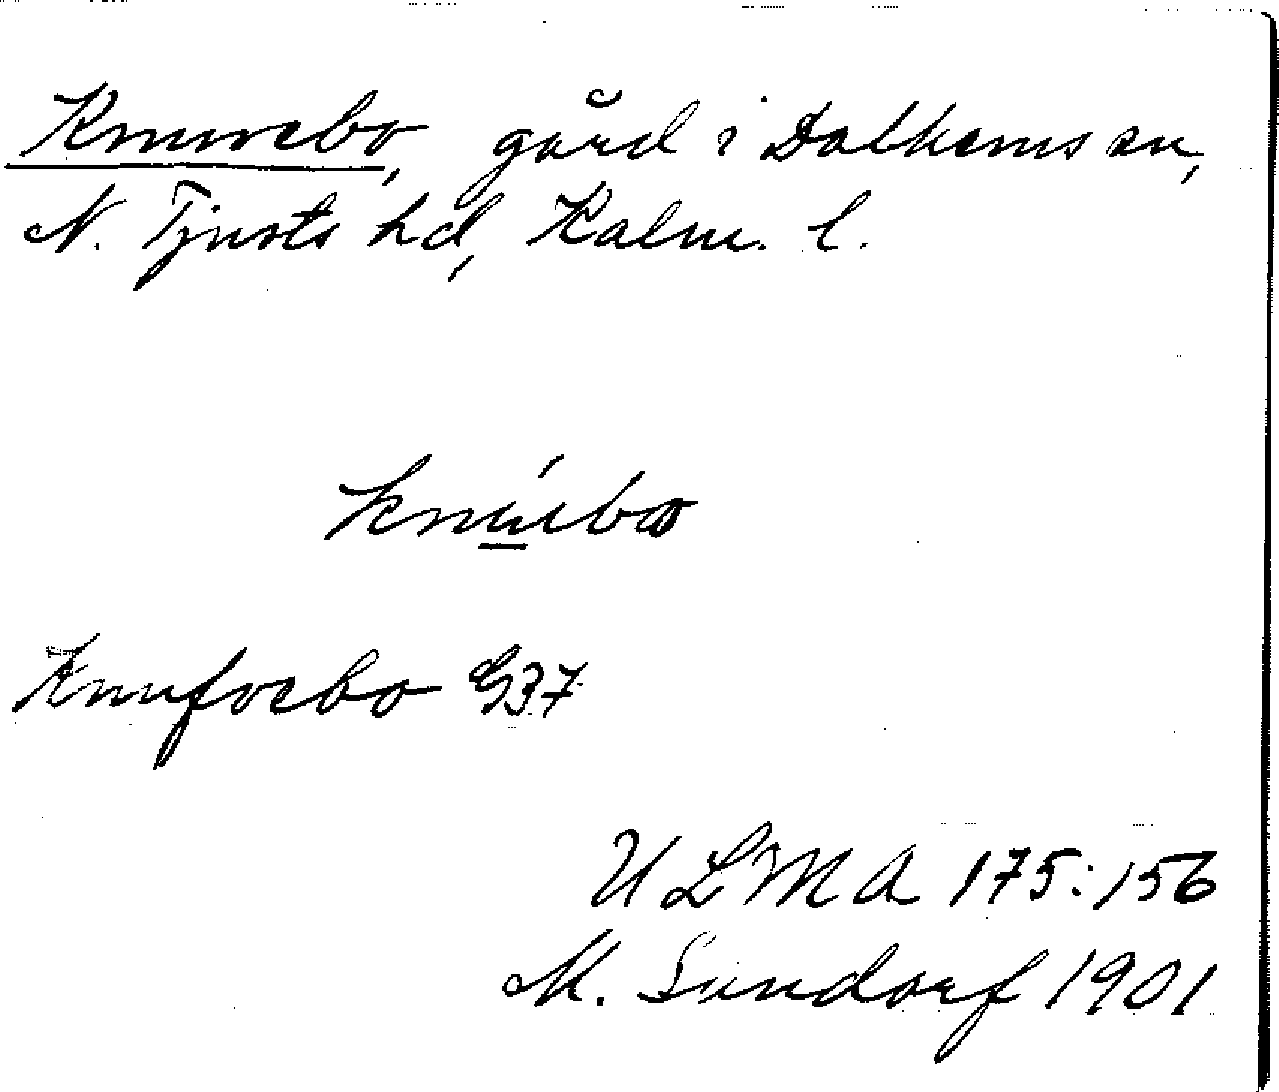 Knuvebo, gård i Dalhems sn,
N. Tjusts hd, Kalm. l.
Knufvebo G37
ULMA 175:156
M. Sundorf 1901